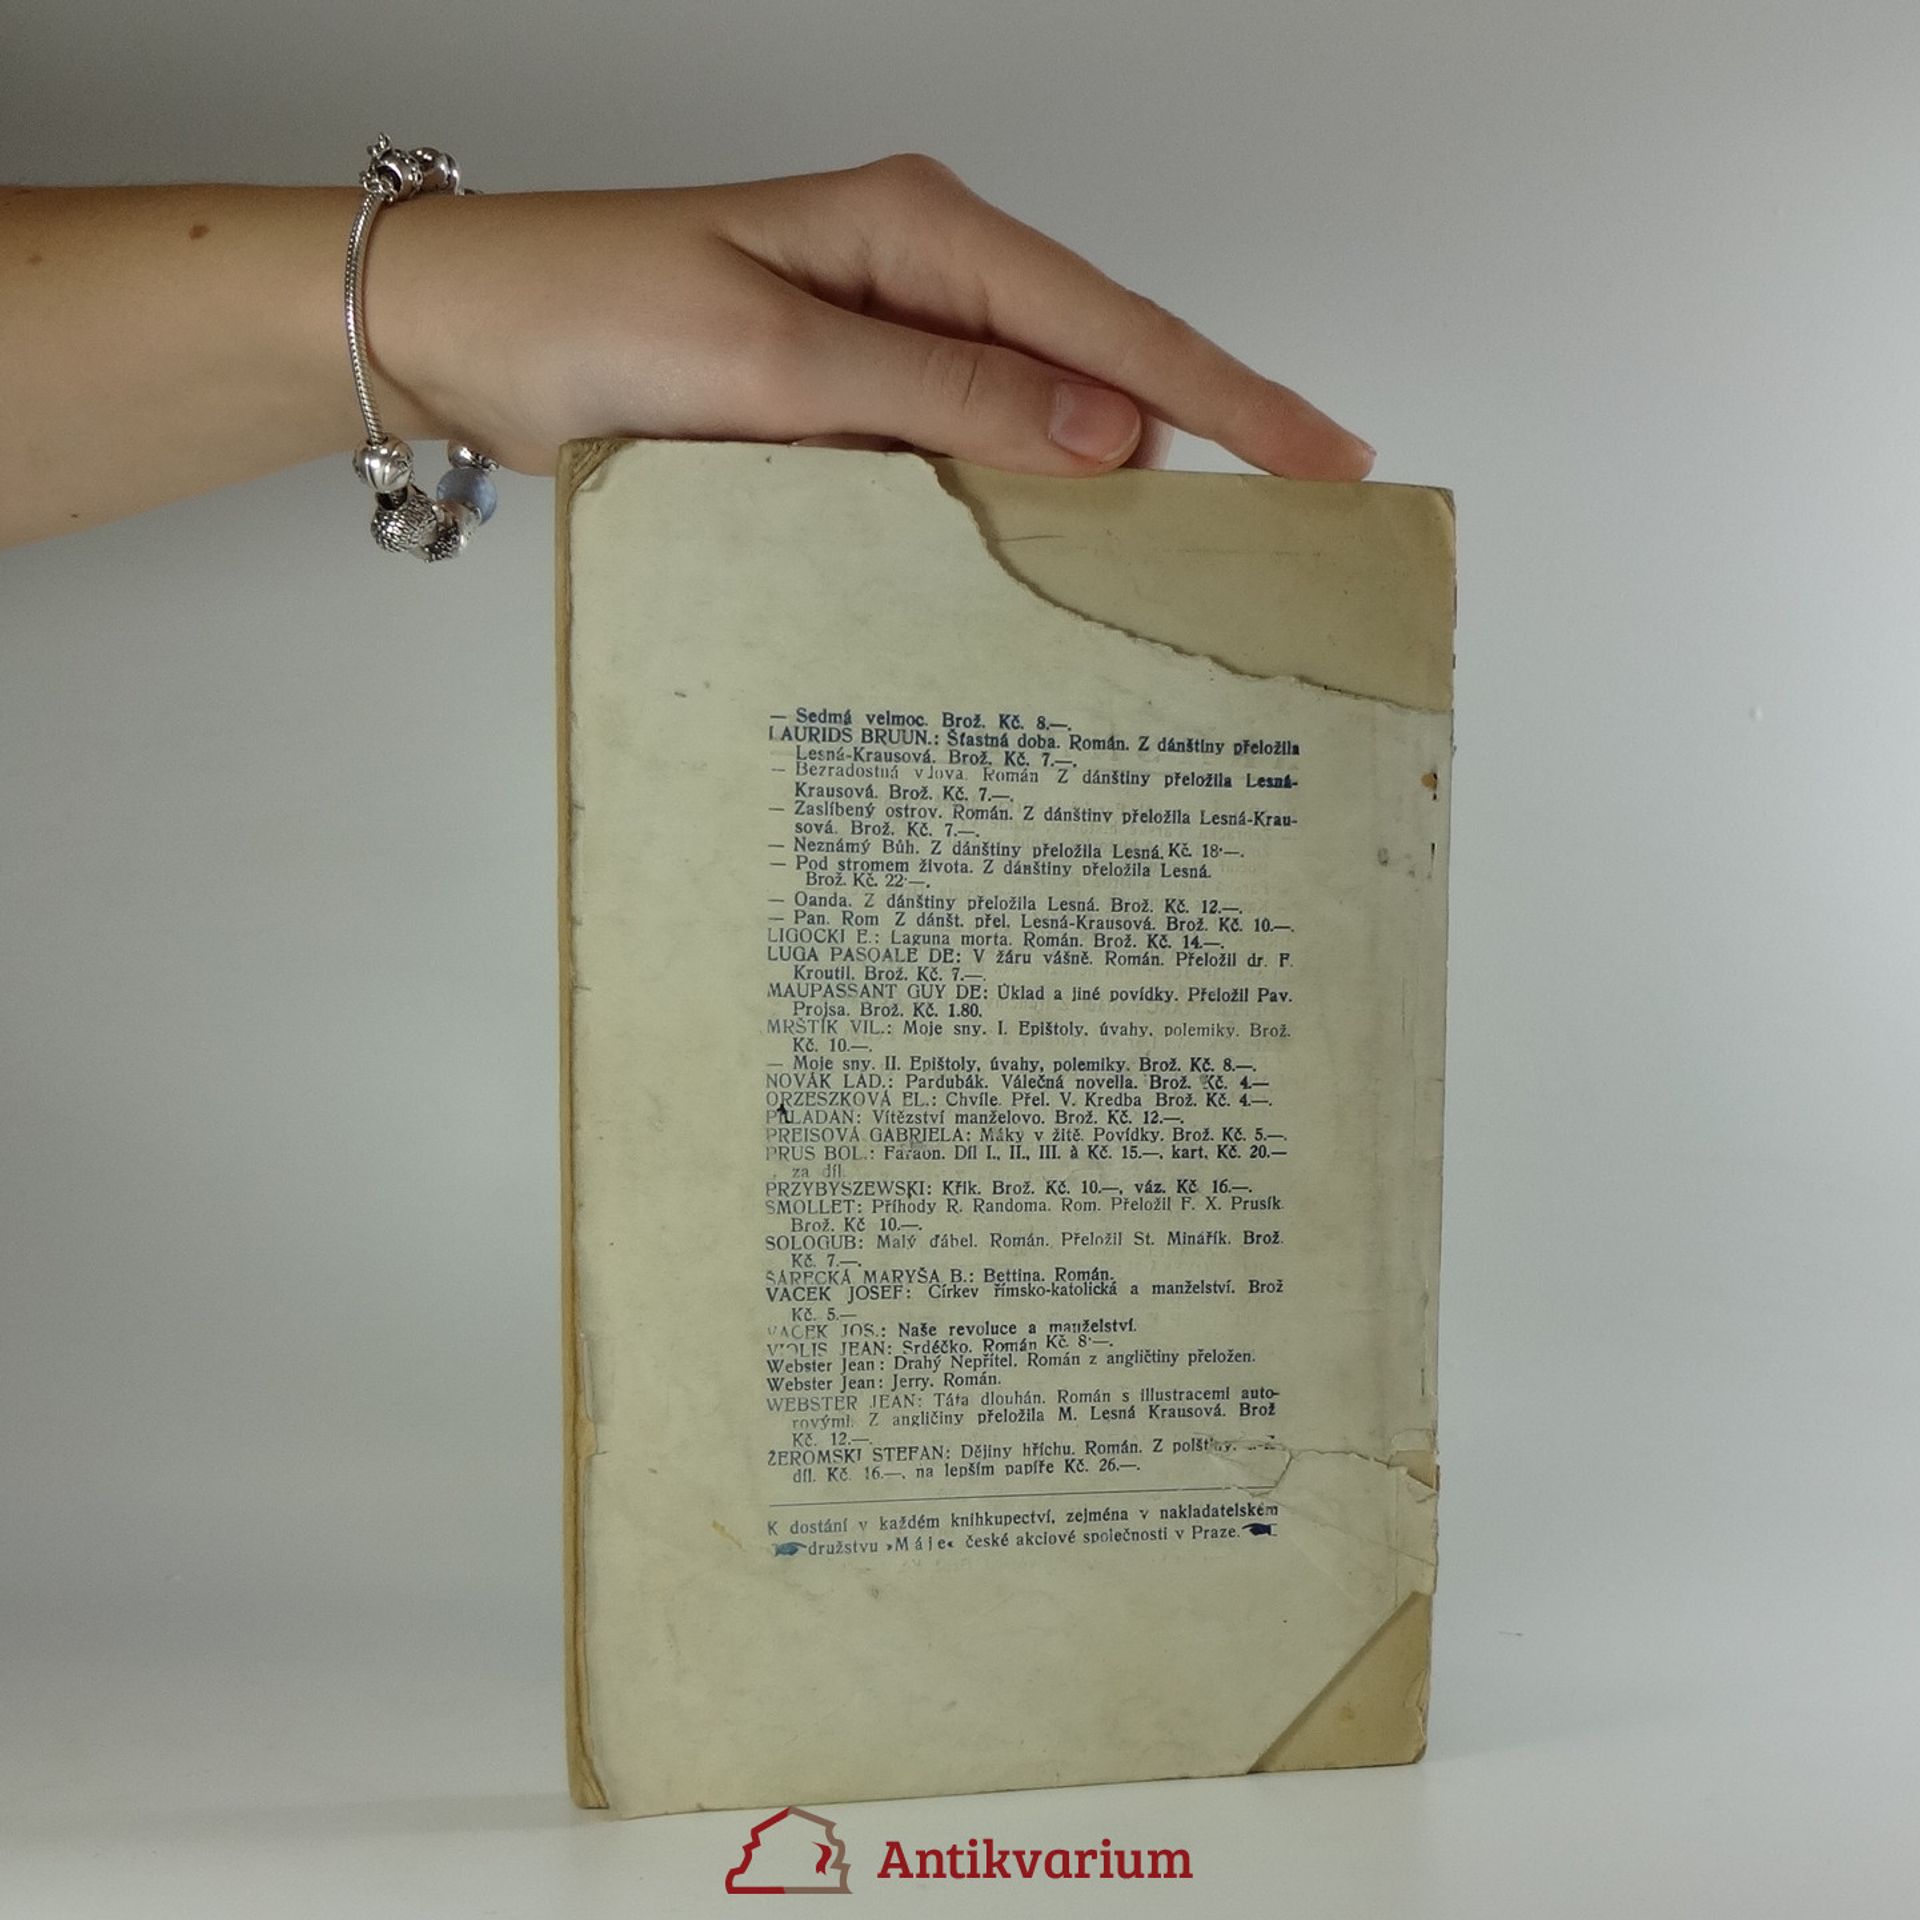 — Sedmá velmoc. Brož. Kč. 8.—.
LAURIDS BRUUN.: Šťastná doba. Román. Z dánštiny přeložila
Lesná-Krausová. Brož. Kč. 7.—.
— Bezradostná vdova. Román Z dánštiny přeložila Lesná-
Krausová. Brož. Kč. 7.—.
— Zaslíbený ostrov. Román. Z dánštiny přeložila Lesná-Krau-
sová. Brož. Kč. 7.—.
— Neznámý Bůh. Z dánštiny přeložila Lesná. Kč. 18·—.
— Pod stromem života. Z dánštiny přeložila Lesná.
Brož. Kč. 22·—.
— Oanda. Z dánštiny přeložila Lesná. Brož. Kč. 12.—.
— Pan. Rom Z dánšt. přel. Lesná-Krausová. Brož. Kč. 10.—.
LIGOCKI E.: Laguna morta. Román. Brož. Kč. 14.—.
LUGA PASQALE DE: V žáru vášně. Román. Přeložil dr. F.
Kroutil. Brož. Kč. 7.—.
MAUPASSANT GUY DE: Úklad a jiné povídky. Přeložil Pav.
Projsa. Brož. Kč. 1.80.
MRŠTÍK VIL.: Moje sny. I. Epištoly, úvahy, polemiky. Brož.
Kč. 10.—.
— Moje sny. II. Epištoly, úvahy, polemiky. Brož. Kč. 8.—.
NOVÁK LAD.: Pardubák. Válečná novella. Brož. Kč. 4.—
ORZESZKOVÁ EL.: Chvíle. Přel. V. Kredba Brož. Kč. 4.—.
PELADAN: Vítězství manželovo. Brož. Kč. 12.—.
PREISOVÁ GABRIELA: Máky v žitě. Povídky. Brož. Kč. 5.—.
PRUS BOL.: Faraon. Díl I., II., III. à Kč. 15.—, kart. Kč. 20.—
za díl.
PRZYBYSZEWSKI: Křik. Brož. Kč. 10.—, váz. Kč. 16.—.
SMOLLET: Příhody R. Randoma. Rom. Přeložil F. X. Prusík
Brož. Kč 10.—.
SOLOGUB: Malý ďábel. Román. Přeložil St. Minářík. Brož.
Kč. 7.—.
ŠÁRECKÁ MARYŠA B.: Bettina. Román.
VACEK JOSEF: Církev římsko-katolická a manželství. Brož
Kč. 5.—
VACEK JOS.: Naše revoluce a manželství.
VIOLIS JEAN: Srdéčko. Román Kč. 8·—.
Webster Jean: Drahý Nepřítel. Román z angličtiny přeložen.
Webster Jean: Jerry. Román.
WEBSTER JEAN: Táta dlouhán. Román s illustracemi auto-
rovými. Z angličiny přeložila M. Lesná Krausová. Brož
Kč. 12.—.
ŽEROMSKI STEFAN: Dějiny hříchu. Román. Z polštiny.
díl. Kč. 16.—, na lepším papíře Kč. 26.—.
K dostání v každém knihkupectví, zejména v nakladatelském
družstvu »Máje« české akciové společnosti v Praze.
Antikvarium